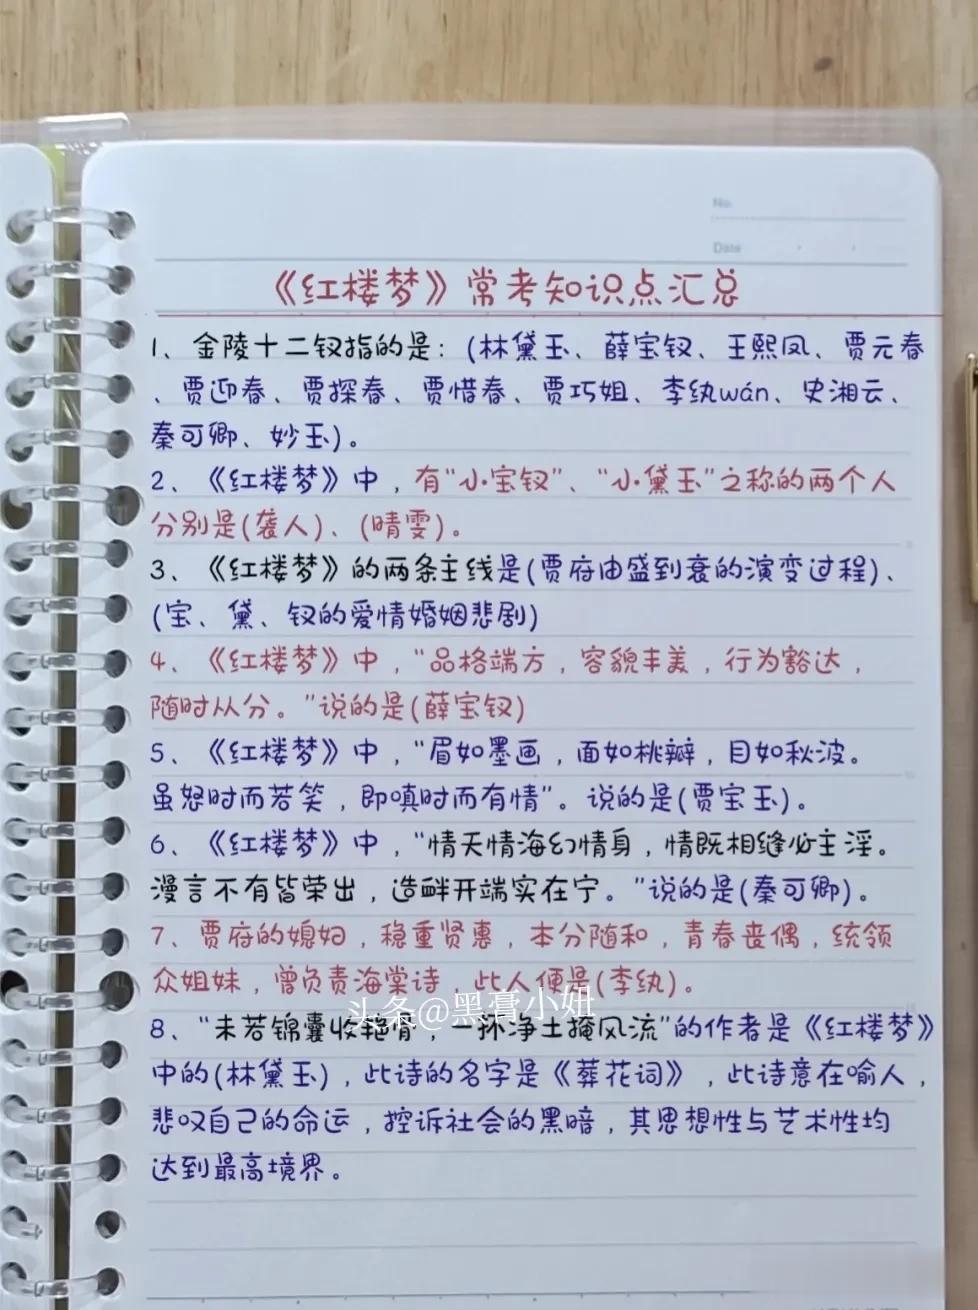 No.
Date
《红楼梦》常考知识点汇总
1、金陵十二钗指的是：(林黛玉、薛宝钗、王熙凤、贾元春
、贾迎春、贾探春、贾惜春、贾巧姐、李纨wán、史湘云、
秦可卿、妙玉)。
2、《红楼梦》中，有“小宝钗”、“小黛玉”之称的两个人
分别是(袭人)、(晴雯)。
3、《红楼梦》的两条主线是(贾府由盛到衰的演变过程)、
(宝、黛、钗的爱情婚姻悲剧)
4、《红楼梦》中，“品格端方，容貌丰美，行为豁达，
随时从分。”说的是(薛宝钗)
5、《红楼梦》中，“眉如墨画，面如桃瓣，目如秋波。
虽怒时而若笑，即嗔时而有情”。说的是(贾宝玉)。
6、《红楼梦》中，“情天情海幻情身，情既相缝必主淫。
漫言不有皆荣出，造衅开端实在宁。”说的是(秦可卿)。
7、贾府的媳妇，稳重贤惠，本分随和，青春丧偶，统领
众姐妹，曾负责海棠诗，此人便是(李纨)。
头条@黑膏小妞
8、“未若锦囊收艳骨，一抔净土掩风流”的作者是《红楼梦》
中的(林黛玉)，此诗的名字是《葬花词》，此诗意在喻人，
悲叹自己的命运，控诉社会的黑暗，其思想性与艺术性均
达到最高境界。